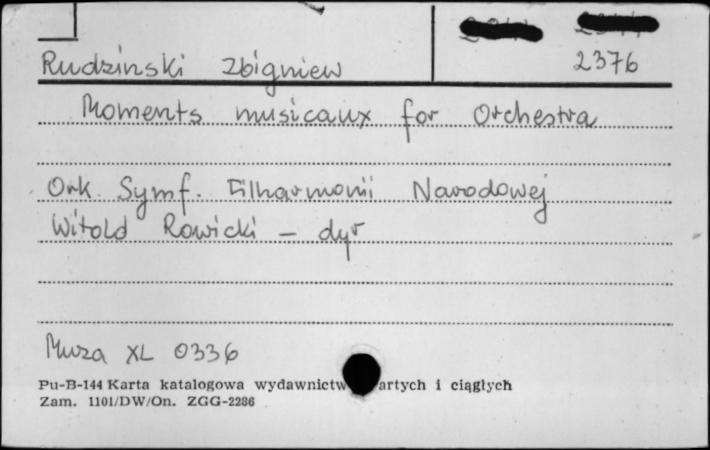 Rudzinski Zbigniew
2376
Moments musicaux for Orchestra
Ork. Symf. Filharmonii Narodowej
Witold Rowicki – dyr
Muza XL 0336
Pu-B-144 Karta katalogowa wydawnictw artych i ciągłych
Zam. 1101/DW/On. ZGG-2286